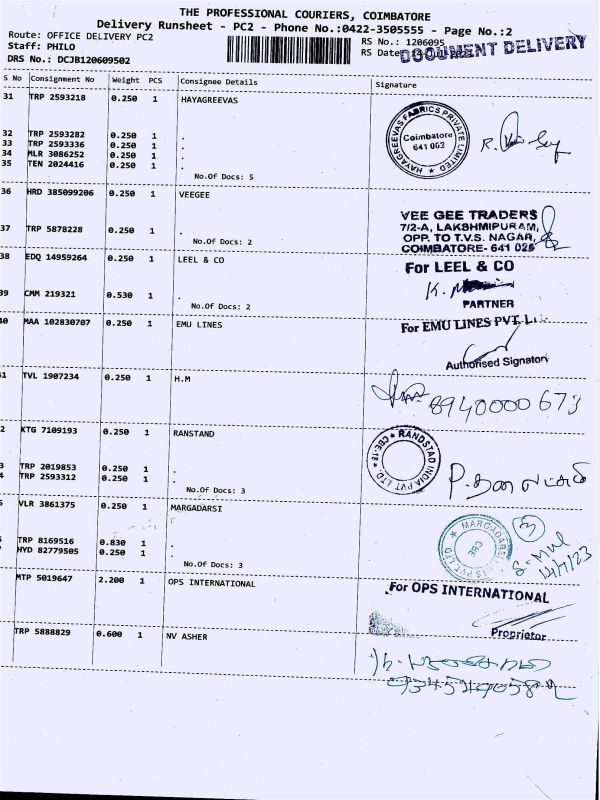 THE PROFESSIONAL COURIERS, COIMBATORE
Delivery Runsheet - PC2 - Phone No.:0422-3505555 - Page No.:2
Route: OFFICE DELIVERY PC2
Staff: PHILO
DRS No.: DCJB120609502
RS No.: 1206095
RS Date:
DOCUMENT DELIVERY
S No Consignment No Weight PCS Consignee Details Signature
31 TRP 2593218 0.250 1 HAYAGREEVAS
HAYAGREEVAS FABRICS PRIVATE LIMITED
Coimbatore
641 002
32 TRP 2593282 0.250 1 .
33 TRP 2593336 0.250 1 .
34 MLR 3086252 0.250 1 .
35 TEN 2024416 0.250 1 .
No.Of Docs: 5
36 HRD 385099206 0.250 1 VEEGEE
VEE GEE TRADERS
7/2-A, LAKSHMIPURAM,
OPP. TO T.V.S. NAGAR,
COIMBATORE- 641 025
37 TRP 5878228 0.250 1 .
No.Of Docs: 2
38 EDQ 14959264 0.250 1 LEEL & CO
For LEEL & CO
K.
PARTNER
39 CMM 219321 0.530 1 .
No.Of Docs: 2
40 MAA 102830707 0.250 1 EMU LINES
For EMU LINES PVT. L
Authorised Signatory
1 TVL 1907234 0.250 1 H.M
8940000673
2 KTG 7109193 0.250 1 RANSTAND
RANDSTAD INDIA PVT LTD. CBE-18
3 TRP 2019853 0.250 1 .
4 TRP 2593312 0.250 1 .
No.Of Docs: 3
5 VLR 3861375 0.250 1 MARGADARSI
CBE
3
14/7/23
TRP 8169516 0.830 1 .
HYD 82779505 0.250 1 .
No.Of Docs: 3
MTP 5019647 2.200 1 OPS INTERNATIONAL
For OPS INTERNATIONAL
Proprietor
TRP 5888829 0.600 1 NV ASHER